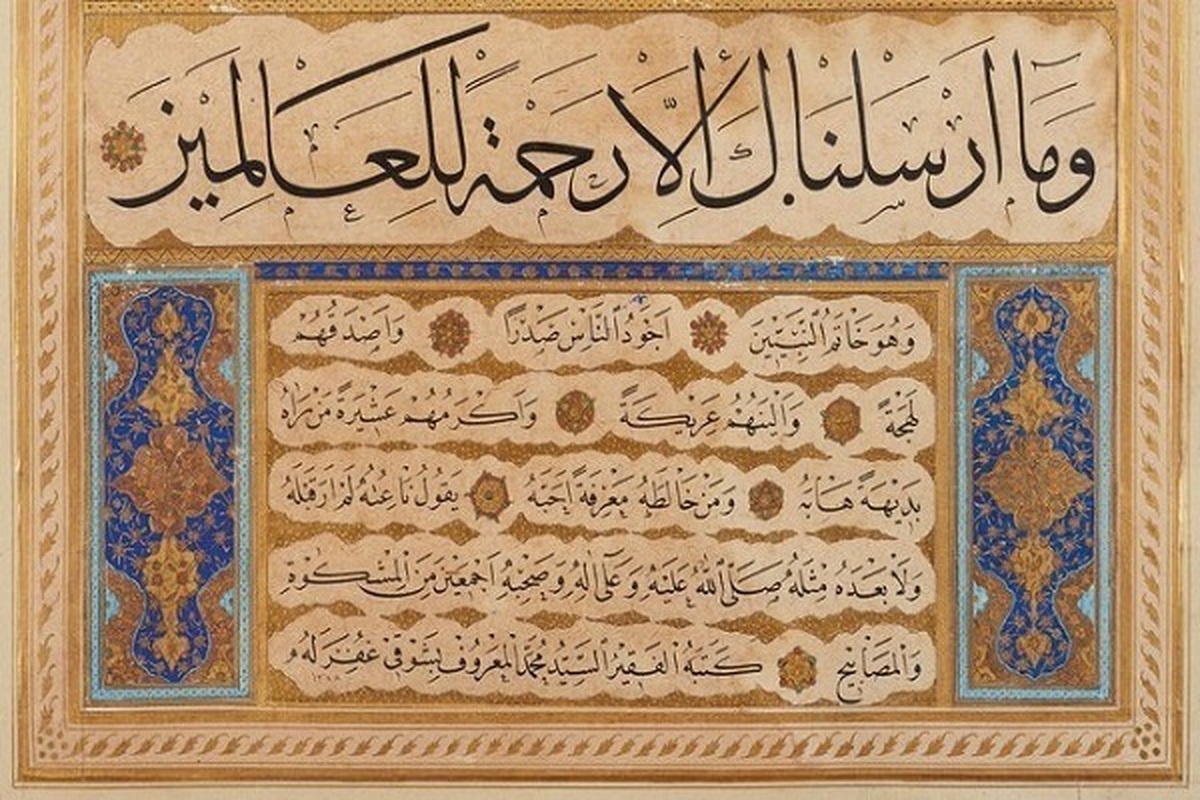 وَمَا أَرْسَلْنَاكَ إِلَّا رَحْمَةً لِلْعَالَمِينَ
وَهُوَ خَاتَمُ النَّبِيِّينَ اَجْوَدُ النَّاسِ صَدْرًا وَاَصْدَقُهُمْ
لَهْجَةً وَاَلْيَنُهُمْ عَرِيكَةً وَاَكْرَمُهُمْ عَشِيرَةً مَنْ رَاٰهُ
بَدِيهَةً هَابَهُ وَمَنْ خَالَطَهُ مَعْرِفَةً اَحَبَّهُ يَقُولُ نَاعِتُهُ لَمْ اَرَ قَبْلَهُ
وَلَا بَعْدَهُ مِثْلَهُ صَلَّى اللّٰهُ عَلَيْهِ وَعَلَى اٰلِهِ وَصَحْبِهِ اَجْمَعِينَ مِنَ الْمِشْكٰوةِ
وَالْمَصَابِيحِ كَتَبَهُ الْفَقِيرُ السَّيِّدُ مُحَمَّدُ الْمَعْرُوفُ بِشَوْقِي غُفِرَ لَهُ